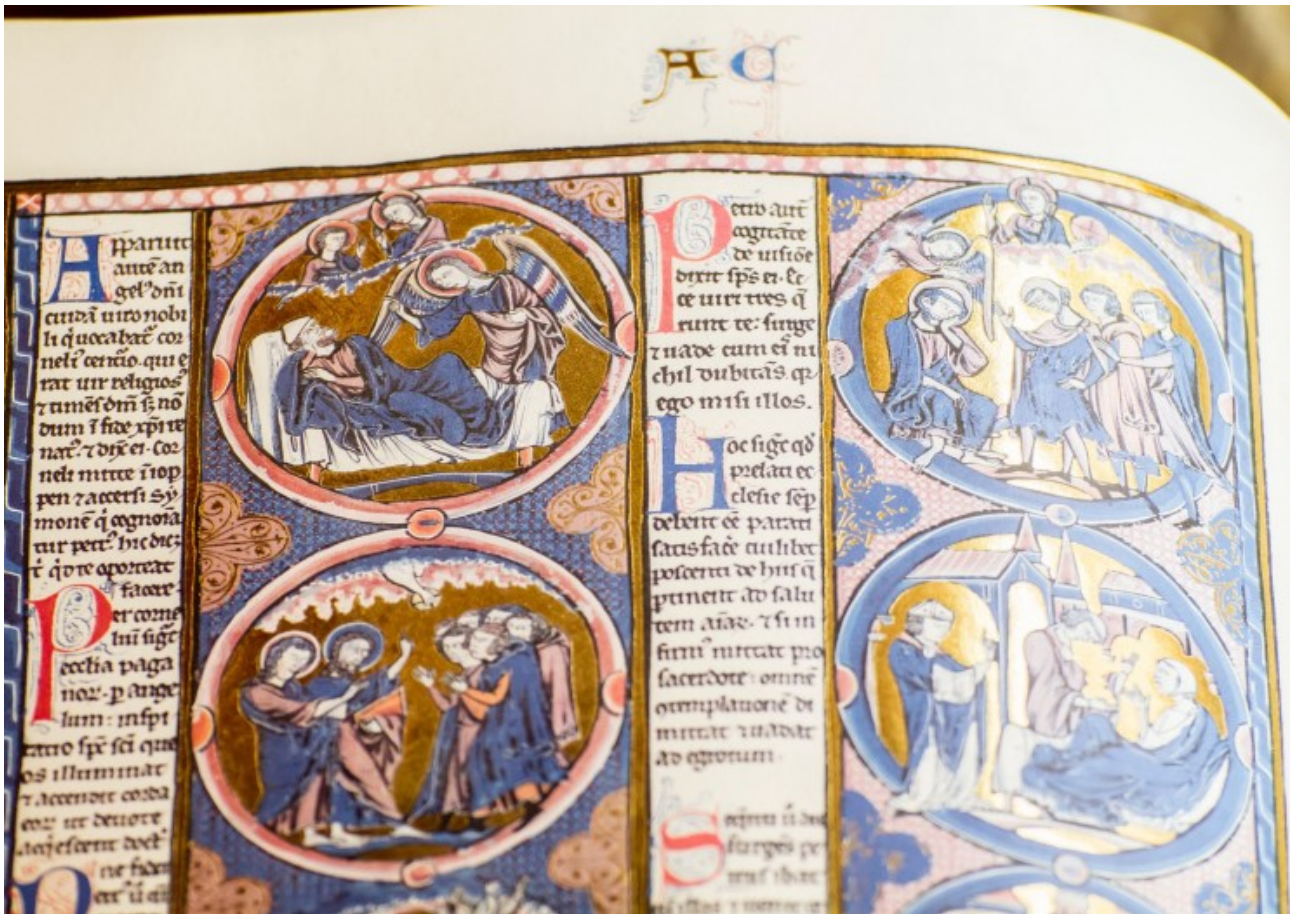 A C
Apparuit
autē an
gel᷒ dn̄i
cuidā uiro nobi
li q̇ uocabat᷒ cor
neli᷒ cēturio. qui e
rat uir religios᷒
⁊ timēs dm̄ sꝫ nō
dum ī fide xp̄i re
nat᷒. ⁊ dix̄ ei. Cor
neli mitte ī iop
pen ⁊ accersi sy
monē q̇ cognoīa
tur petr᷒. hic dicꝫ
t̄ qͥd te oporteat
facere.
Per corne
liū sigᷓt᷒
ecclīa paga
noꝝ. p̱ ange
lum: inspi
ratio sp̄c sc̄i que
os illuminat
⁊ accendit corda
eoꝝ ut deuote
acq̇escent doct
ne fidei
Petro aut̄
cogitāte
de uisiōe
dixit sp̄s ei. Ec
ce uiri tres q̄
runt te: surge
⁊ uade cum eis̄ ni
chil dubitās. qꝛ
ego misi illos.
Hoc sigᷓt᷒ qd̄
prelati ec
clesie sēp̱
debent eē parati
satisfac̄e cuilibet
poscenti de hiis q̄
p̱tinent ad salu
tem aīaꝝ. ⁊ si in
firm᷒ mittat pro
sacerdote: omnē
ꝯtemplationē di
mittat ⁊ uadat
ad egrotum.